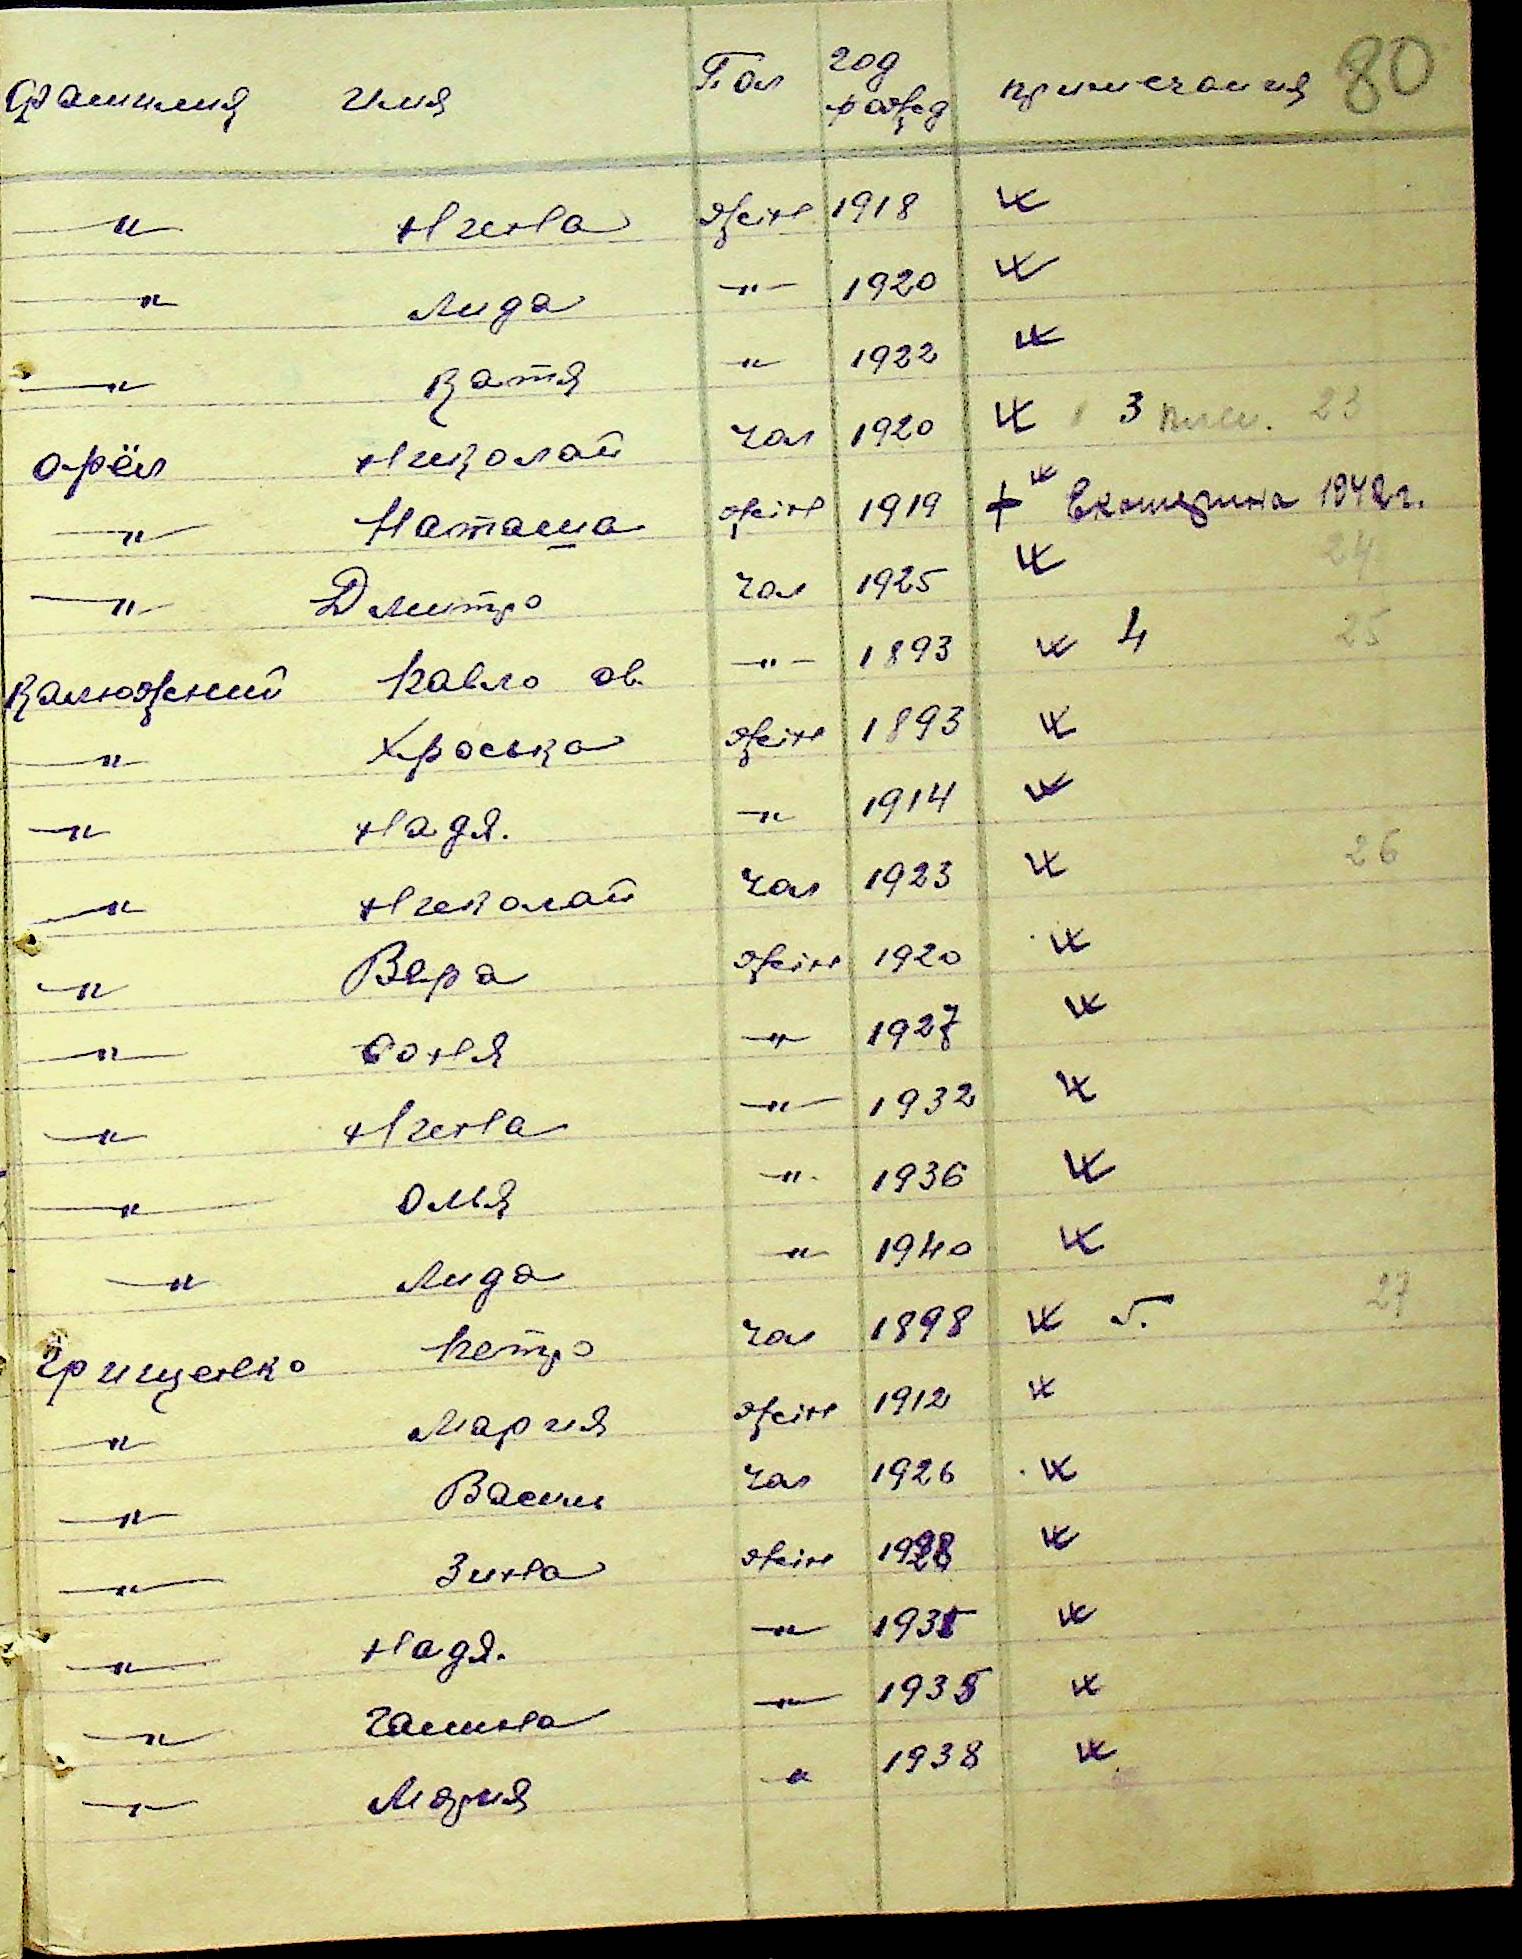 80
Фамилия имя Пол год рожд примечания
—"— Нина жін 1918 Ж
—"— Лида —"— 1920 Ж
—"— Катя —"— 1922 Ж
Орёл Николай чол 1920 Ж 3 23
—"— Наташа жін 1919 + ж Екатерина 1942 г.
—"— Дмитро чол 1925 Ж 24
Калюжний Павло ов. —"— 1893 Ж 4 25
—"— Хроська жін 1893 Ж
—"— Надя. —"— 1914 Ж
—"— Николай чол 1923 Ж 26
—"— Вера жін 1920 Ж
—"— Соня —"— 1927 Ж
—"— Нина —"— 1932 Ж
—"— Оля —"— 1936 Ж
—"— Лида —"— 1940 Ж
Грищенко Петро чол 1898 Ж 5. 27
—"— Мария жін 1912 Ж
—"— Васил чол 1926 Ж
—"— Зина жін 1928 Ж
—"— Надя. —"— Ж
—"— Галина —"— 1935 Ж
—"— Мария —"— 1938 Ж